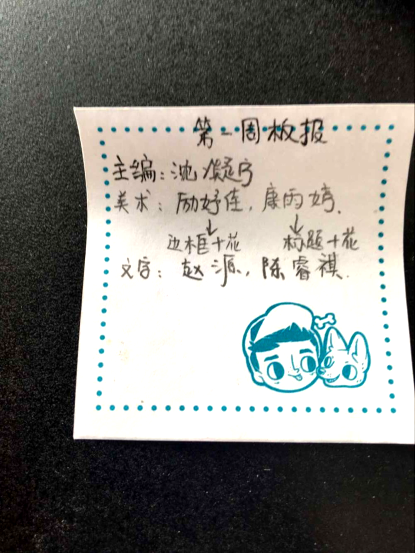 第一周板报
主编：沈凝宁
美术：励妤佳，康雨婷.
↓ ↓
边框+花 标题+花
文字：赵源，陈睿祺.